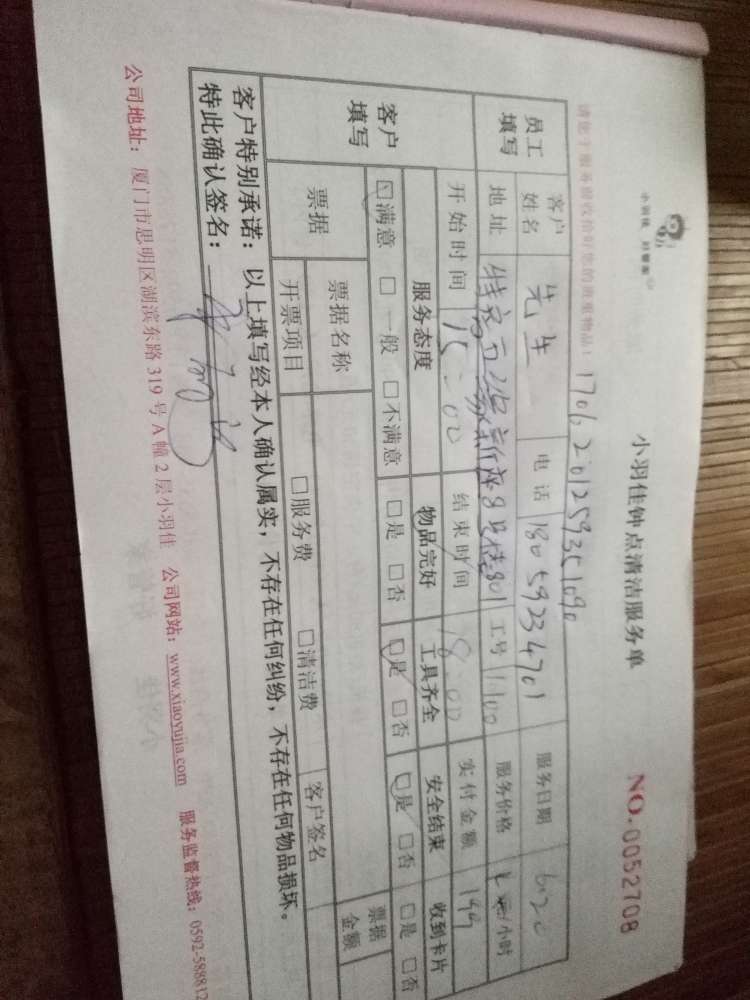 小羽佳钟点清洁服务单
NO.0052708
请您于服务前收拾好您的贵重物品！
员工填写 客户姓名 先生 电话 18059234701 服务日期 6.20
地址 8号楼801 工号 1100 服务价格 /小时
开始时间 15:00 结束时间 18:00 实付金额 149
客户填写 服务态度 物品完好 工具齐全 安全结束 收到卡片
☑满意 □一般 □不满意 □是 □否 ☑是 □否 ☑是 □否 □是 □否
票据 票据名称 客户签名 票据金额
开票项目 □服务费 □清洁费
客户特别承诺：以上填写经本人确认属实，不存在任何纠纷，不存在任何物品损坏。
特此确认签名：
公司地址：厦门市思明区湖滨东路 319 号 A 幢 2 层小羽佳 公司网站：www.xiaoyujia.com 服务监督热线：0592-588812